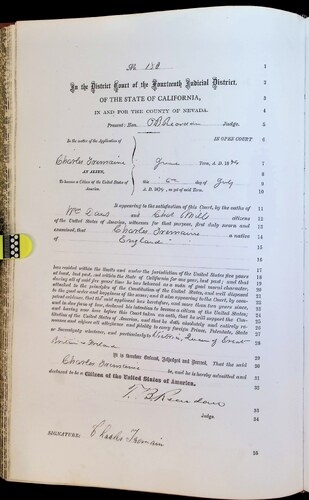 No 130 1
2
In the District Court of the Fourteenth Judicial District,
OF THE STATE OF CALIFORNIA, 3
IN AND FOR THE COUNTY OF NEVADA. 4
Present: Hon. Judge. 5
In the matter of the Application of IN OPEN COURT 6
Charles Tremaine June Term, A. D. 18 7
AN ALIEN, 8
To become a Citizen of the United States of this day of July 9
America. A. D. 187 , as yet of said Term. 10
It appearing to the satisfaction of this Court, by the oaths of 11
Wm and Chas Mills citizens 12
of the United States of America, witnesses for that purpose, first duly sworn and 13
examined, that Charles Tremaine a native 14
of England 15
16
has resided within the limits and under the jurisdiction of the United States five years 17
at least, last past, and within the State of California for one year, last past; and that 18
during all of said five years' time he has behaved as a man of good moral character, 19
attached to the principles of the Constitution of the United States, and well disposed 20
to the good order and happiness of the same; and it also appearing to the Court, by 21
petent evidence, that the said applicant has heretofore, and more than two years since, 22
and in due form of law, declared his intention to become a citizen of the United States, 23
and having now here before this Court taken an oath, that he will support the Con- 24
stitution of the United States of America, and that he doth absolutely and entirely re- 25
nounce and abjure all allegiance and fidelity to every foreign Prince, Potentate, State 26
or Sovereignty whatever, and particularly to Victoria, Queen of Great 27
Britain & Ireland 28
29
It is therefore Ordered, Adjudged and Decreed, That the said 30
Charles Tremaine be, and he is hereby admitted and 31
declared to be a Citizen of the United States of America. 32
33
Judge. 34
35
SIGNATURE: Charles Tremain 36